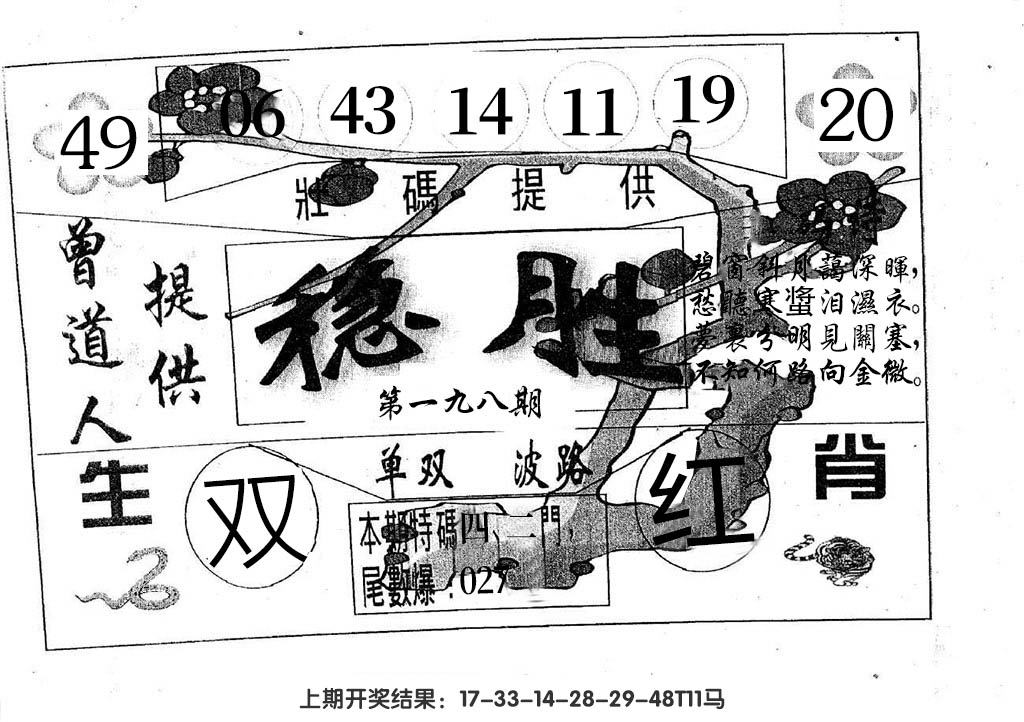 49 06 43 14 11 19 20
壯碼提供
曾道人
提供
稳胜
第一九八期
碧窗斜月藹深暉，
愁聽寒螀泪濕衣。
夢裏分明見關塞，
不知何路向金微。
单双 波路
生 双 红 肖
本期特碼四、二門，
尾數爆：027
上期开奖结果：17-33-14-28-29-48T11马